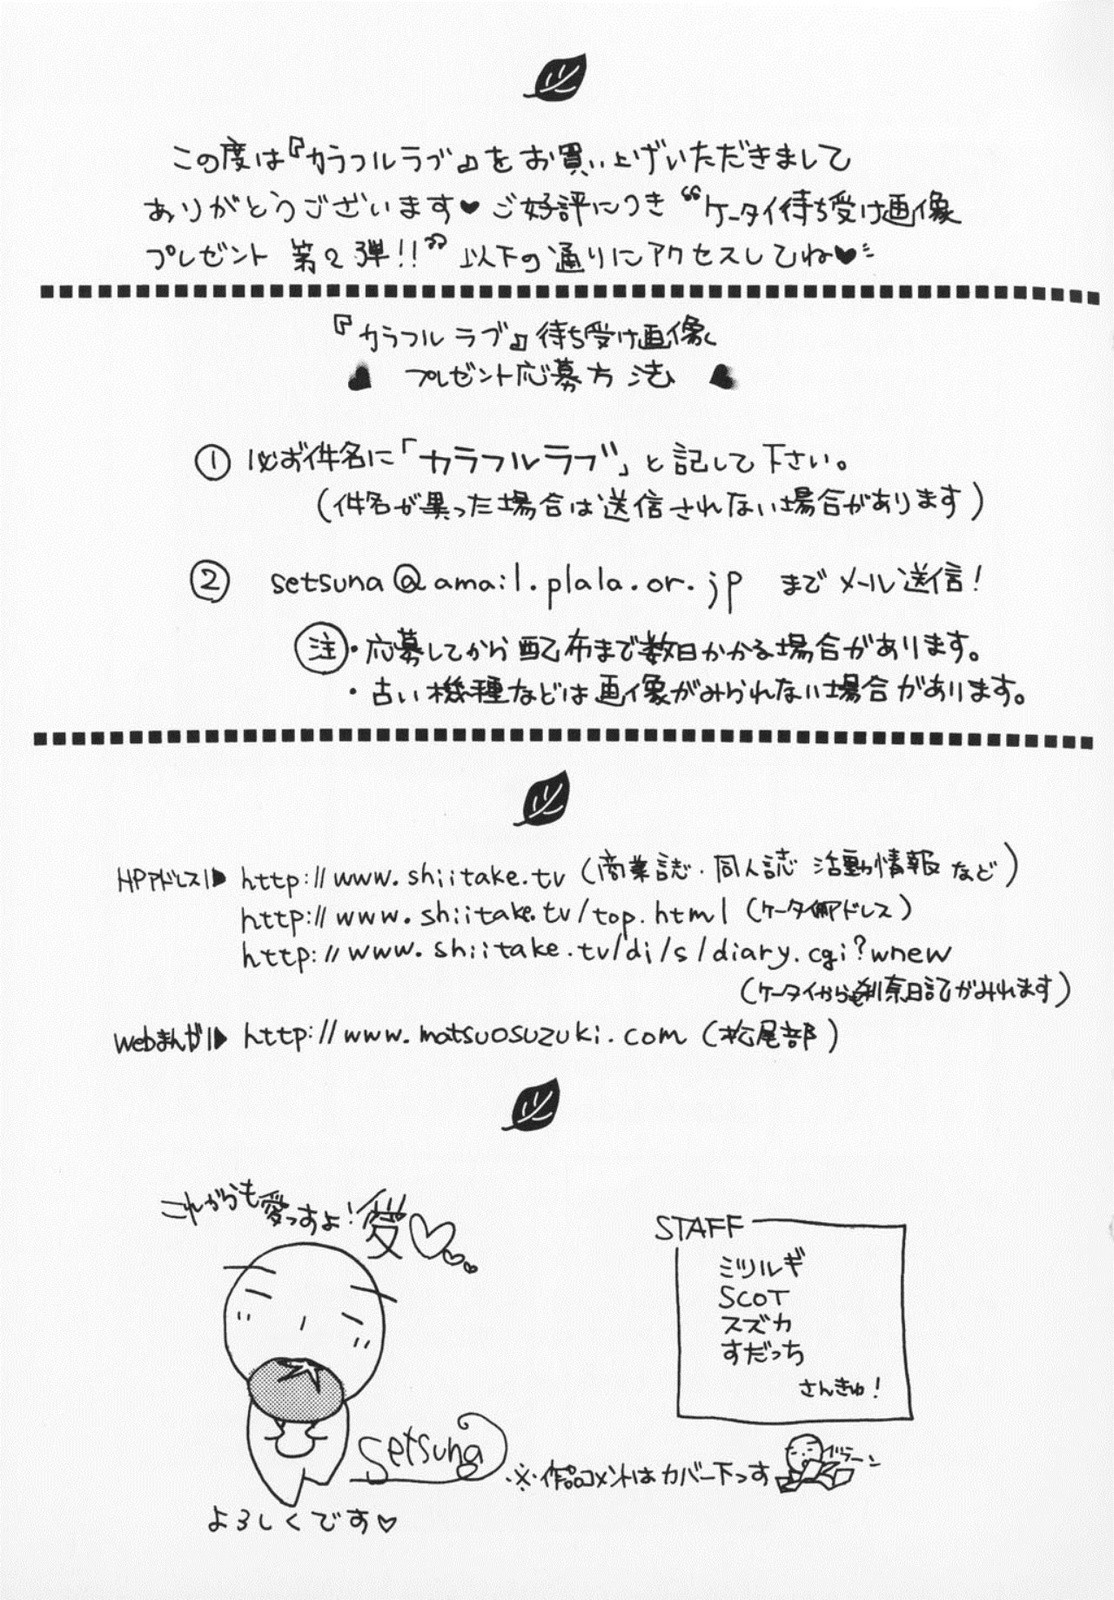 この度は『カラフルラブ』をお買い上げいただきまして
ありがとうございます♥ ご好評につき “ケータイ待ち受け画像
プレゼント 第2弾!!” 以下の通りにアクセスしてね♥
『カラフルラブ』待ち受け画像
♥ プレゼント応募方法 ♥
① 必ず件名に「カラフルラブ」と記して下さい。
(件名が異った場合は送信されない場合があります)
② setsuna@amail.plala.or.jp まで メール送信!
注・応募してから配布まで数日かかる場合があります。
・古い機種などは画像がみられない場合があります。
HPアドレス▶ http://www.shiitake.tv (商業誌・同人誌 活動情報など)
http://www.shiitake.tv/top.html (ケータイ用アドレス)
http://www.shiitake.tv/di/s/diary.cgi?wnew
(ケータイからも刹奈日記がみれます)
Webまんが▶ http://www.matsuosuzuki.com (松尾部)
これからも愛っすよ!愛♡
Setsuna
よろしくです♡
STAFF
ミツルギ
SCOT
スズカ
すだっち
さんきゅ!
※作品コメントはカバー下っす